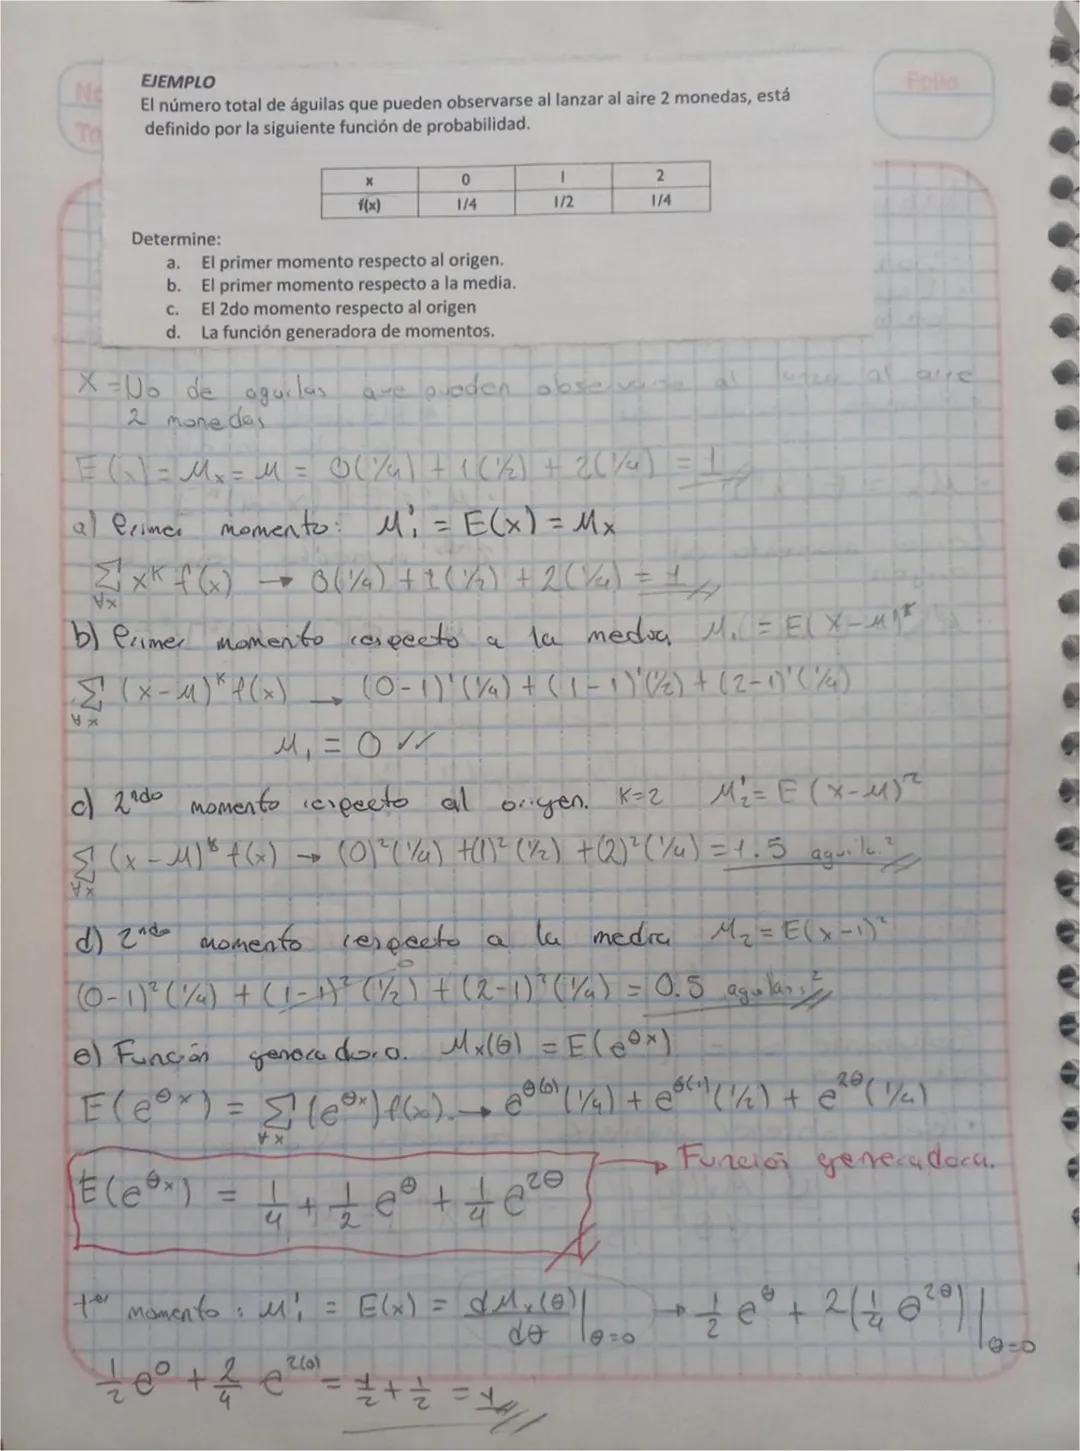 No
To
Folio
EJEMPLO
El número total de águilas que pueden observarse al lanzar al aire 2 monedas, está
definido por la siguiente función de probabilidad.
x 0 1 2
f(x) 1/4 1/2 1/4
Determine:
a. El primer momento respecto al origen.
b. El primer momento respecto a la media.
c. El 2do momento respecto al origen
d. La función generadora de momentos.
X = No de aguilas que pueden observarse al lanzar al aire
2 monedas
E(x) = Mx = M = 0(1/4) + 1(1/2) + 2(1/4) = 1
a) Primer momento: M'₁ = E(x) = Mx
Σ x^K f(x) → 0(1/4) + 1(1/2) + 2(1/4) = 1
∀x
b) Primer momento respecto a la media M₁ = E(X-M)^K
Σ (x-M)^K f(x) → (0-1)¹(1/4) + (1-1)¹(1/2) + (2-1)¹(1/4)
∀x
M₁ = 0 ✓✓
c) 2ndo momento respecto al origen. K=2 M'₂ = E(x-M)²
Σ (x-M)^K f(x) → (0)²(1/4) + (1)²(1/2) + (2)²(1/4) = 1.5 aguila.²
∀x
d) 2ndo momento respecto a la media M₂ = E(x-1)²
0
(0-1)²(1/4) + (1-1)²(1/2) + (2-1)²(1/4) = 0.5 aguilas²
e) Función generadora. Mx(θ) = E(e^θx)
E(e^θx) = Σ (e^θx) f(x). → e^θ(0) (1/4) + e^θ(1) (1/2) + e^2θ (1/4)
∀x
E(e^θx) = 1/4 + 1/2 e^θ + 1/4 e^2θ → Función generadora.
1er momento: M'₁ = E(x) = dMx(θ)/dθ |θ=0 → 1/2 e^θ + 2(1/4 e^2θ) |θ=0
1/2 e^0 + 2/4 e^2(0) = 1/2 + 1/2 = 1